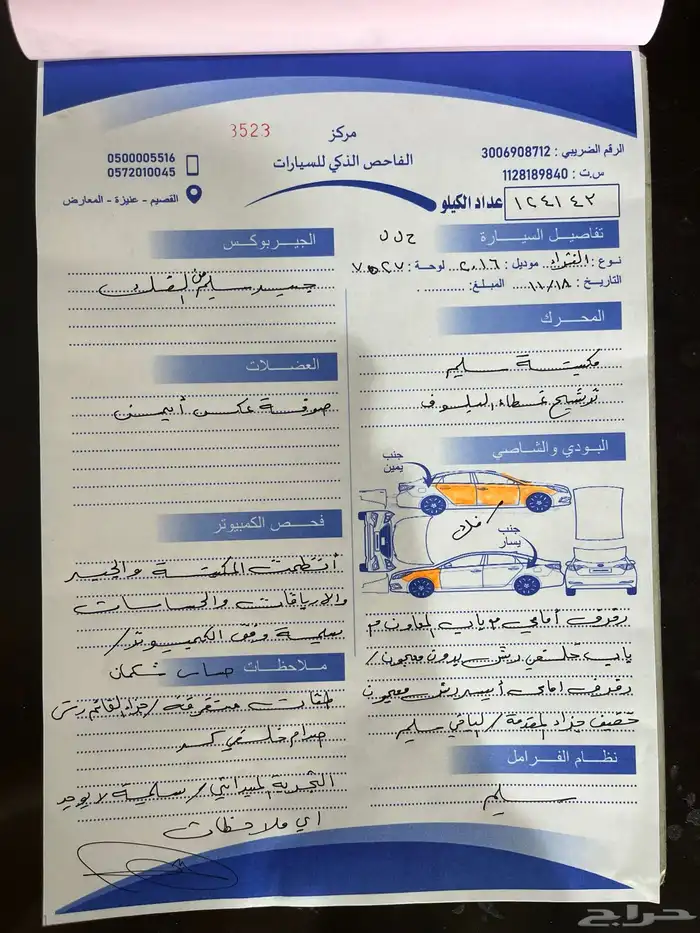 3523
مركز
الفاحص الذكي للسيارات
الرقم الضريبي : 3006908712
س.ت : 1128189840
0500005516
0572010045
القصيم - عنيزة - المعارض
عداد الكيلو
١٢٤١٤٢
تفاصيل السيارة
نوع : النترا موديل : ٢٠١٦ لوحة :
التاريخ : ١١/١٨ المبلغ:
المحرك
مكينة سليم
ترشيح غطاء البلوف
البودي والشاصي
جنب يمين
جنب يسار
فك
رفرف أمامي مع باب المعاون مع
باب خلفي رش بدون معجون /
رفرف امامي أيسر رش معجون
خفيف جزاء المقدمة / الباقي سليم
نظام الفرامل
سليم
الجيربوكس
جيد سليم من الفك
العضلات
صوفة عكس أيمن
فحص الكمبيوتر
أنظمة المكينة والجير
والارباقات والحساسات
سليمة وفق الكمبيوتر /
ملاحظات
حساس شكمان
طقات متفرقة / جزاء القائم رش
صدام خلفي كسر
التجربة الميداني / سليمة لا يوجد
اي ملاحظات
1
حراج